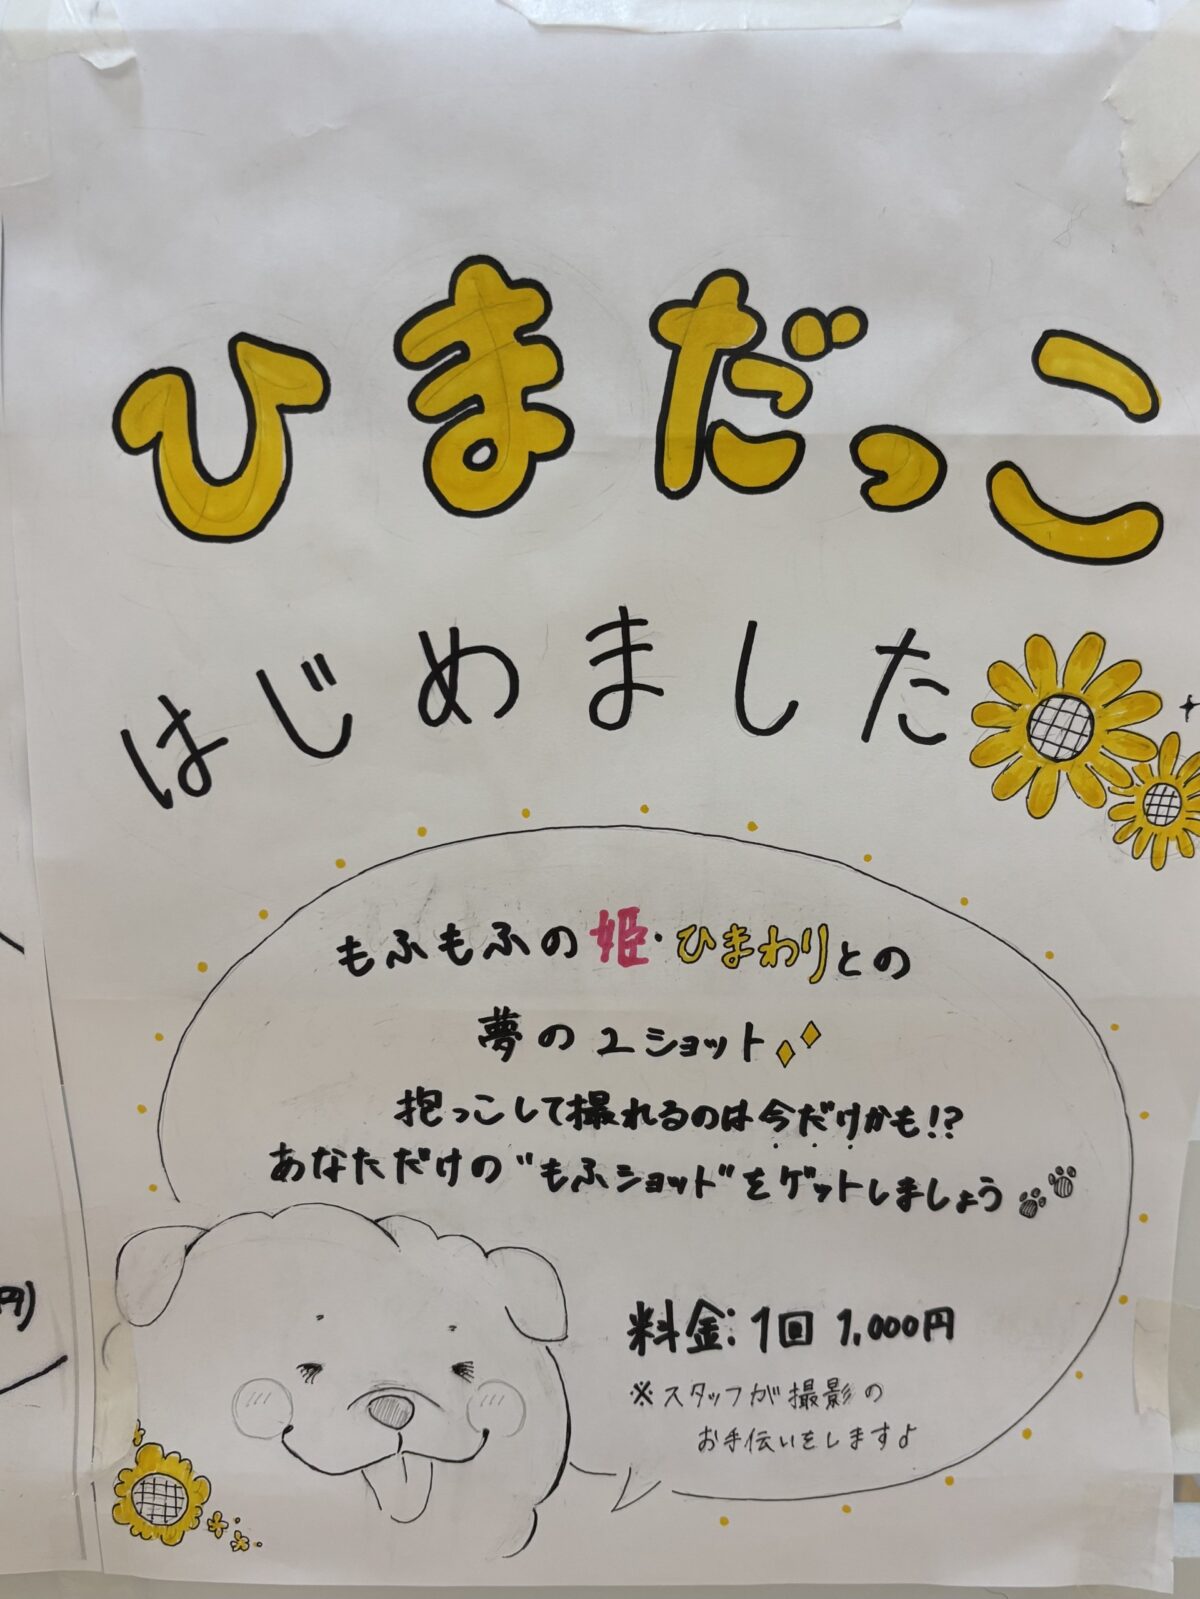 ひまだっこ
はじめました
もふもふの姫・ひまわりとの
夢の2ショット
抱っこして撮れるのは今だけかも!?
あなただけの"もふショット"をゲットしましょう
料金:1回 1,000円
※スタッフが撮影の
お手伝いをしますよ
円)